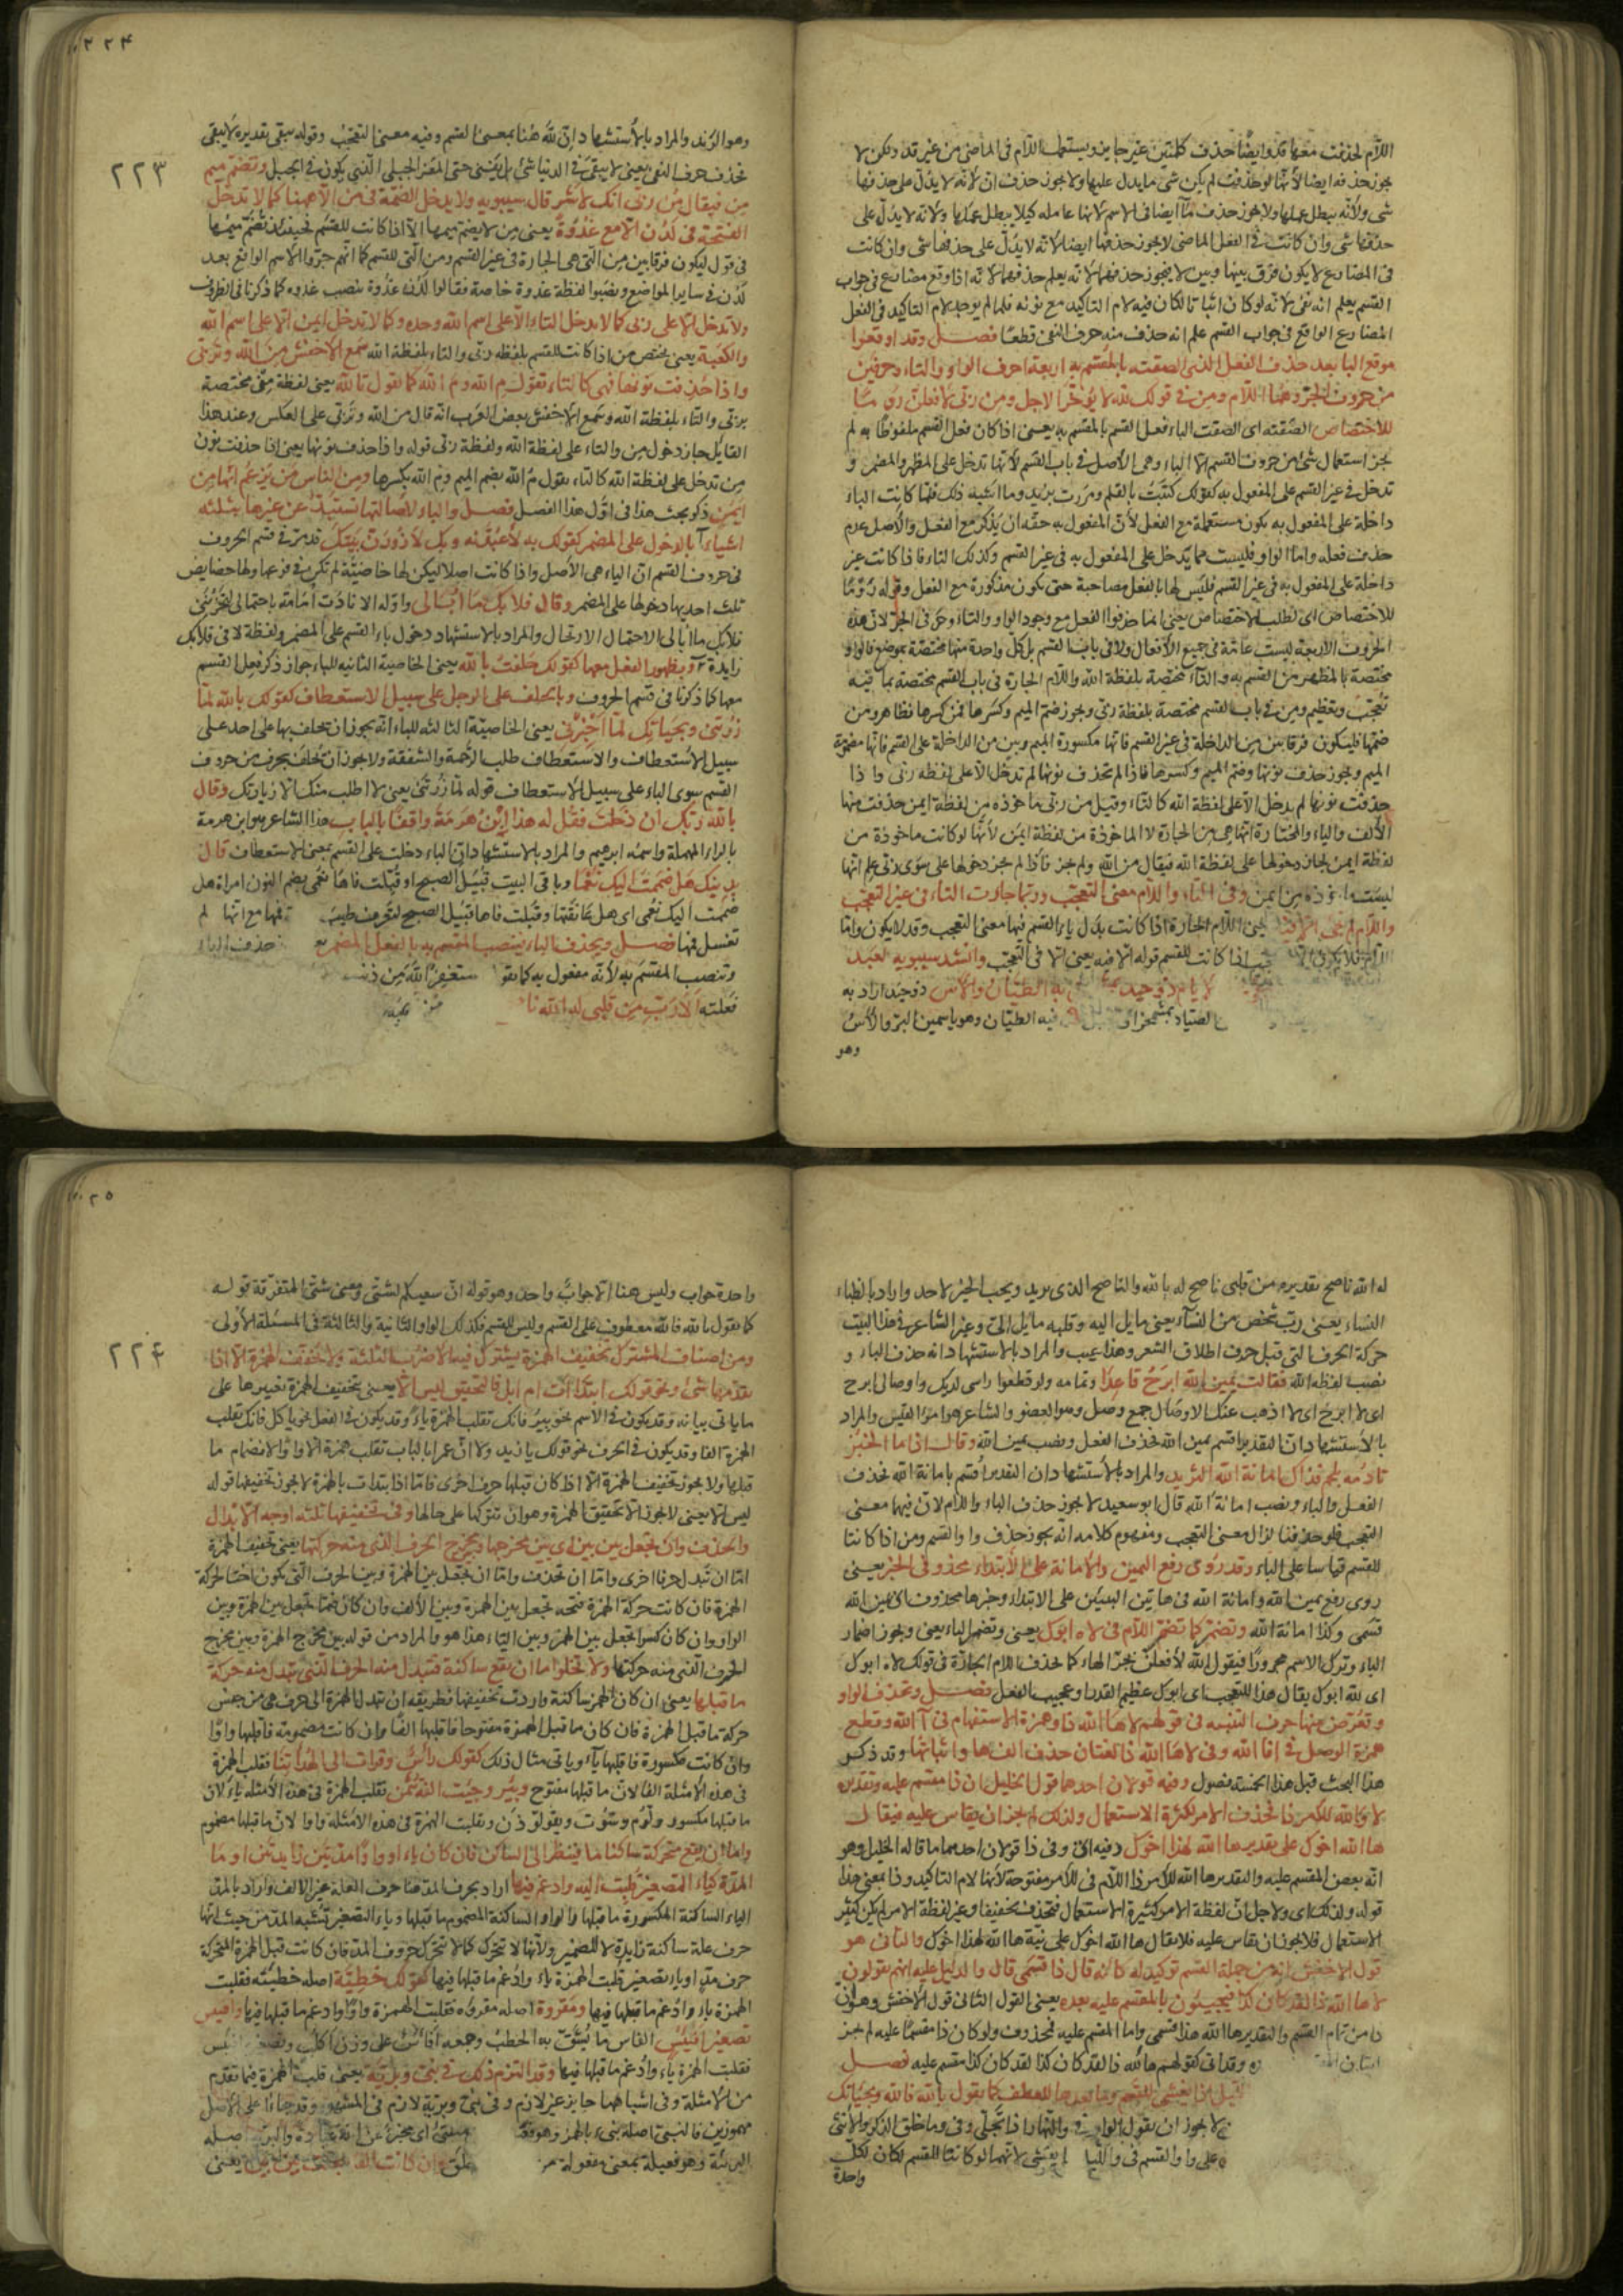 اللّام لحذفت معها قد وايضًا حذف كلمتين غير جايز ويستعمل اللّام فى الماضى من غير قد ولكن لا
يجوز حذفه ايضا لأنّها لو حذفت لم يكن شى ما يدل عليها ولا يجوز حذف انّ لأنّه لا يدُلّ على حذفها
شى ولأنّه يبطل عملها ولا يجوز حذف ما ايضا فى الاسم لأنها عامله كيلا يبطل عملها ولأنه لا يدُلّ على
حذفها شى وان كانت فى الفعل الماضى لا يجوز حذفها ايضا لأنّه لا يدُلّ على حذفها شى وان كانت
فى المضارع لا يكون فرق بينها وبين لا فيجوز حذفهما لأنه يعلم حذفهما لأنّه اذا وقع مضارع فى جواب
القسم يعلم انه نفى لأنّه لو كان اثباتا لكان فيه لام التاكيد مع نونه فلما لم يوجد لام التاكيد فى الفعل
المضارع الواقع فى جواب القسم علم انه حذف منه حرف النفى قطعًا فصل وقد اوقعوا
موقع البا بعد حذف الفعل الذى الصقته بالمقسم به اربعة احرف الواو والتاء وحرفين
من حروف الجرّ وهما اللّام ومن فى قولك لله لا يُؤخّر الاجل ومن ربّى لأفعلنّ رومًا
للاختصاص الصقته اى الصقت الباء فعل القسم بالمقسم به يعنى اذا كان فعل القسم ملفوظًا به لم
يجز استعمال شئ من حروف القسم الّا الباء وهى الأصل فى باب القسم لأنها تدخل على المظهر والمضمر و
تدخل فى غير القسم على المفعول به كقولك كتبت بالقلم ومررت بزيد وما اشبه ذلك فلما كانت الباء
داخلة على المفعول به يكون مستعملة مع الفعل لأنّ المفعول به حقّه ان يذكر مع الفعل والأصل عدم
حذف فعله واما الواو فليست مما يدخل على المفعول به فى غير القسم وكذلك التاء فاذا كانت غير
داخلة على المفعول به فى غير القسم فليس لها بالفعل مصاحبة حتى يكون مذكورة مع الفعل وقوله رَوْمًا
للاختصاص اى لطلب الاختصاص يعنى انما حذفوا الفعل مع وجود الواو والتاء وحرفى الجرّ لأن هذه
الحروف الأربعة ليست عامّة فى جميع الأفعال ولا فى باب القسم بل كلّ واحدة منها مختصّة بموضع فالواو
مختصة بالمظهر من القسم به والتاء مختصة بلفظة الله واللّام الجارة فى باب القسم مختصة بما فيه
تعجّب وتعظيم ومن فى باب القسم مختصة بلفظة ربّى ويجوز ضمّ الميم وكسرها فمن كسرها فظاهر ومن
ضمّها فليكون فرقا بين من الداخلة فى غير القسم فانّها مكسورة الميم وبين من الداخلة على القسم فانّها مضمومة
الميم ويجوز حذف نونها وضم الميم وكسرها فاذا لم تحذف نونها لم تدخل الّا على لفظة ربّى واذا
حذفت نونها لم يدخل الّا على لفظة الله كالتاء وقيل من ربّى ماخوذه من لفظة ايمن حذفت منها
الألف والياء والمختارة انّها هى من الجارة لا الماخوذة من لفظة ايمن لأنّها لو كانت ماخوذة من
لفظة ايمن لجاز دخولها على لفظة الله فيقال من الله ولم يجز فاذا لم يجز دخولها على سوى ربّى علم انّها
ليست ماخوذه من ايمن وفى التاء واللّام معنى التعجّب وربّما جاءت التاء فى غير التعجّب
واللّام لم تجئ الّا فيه يعنى اللّام الجارة اذا كانت بدل باء القسم فيها معنى التعجب وقد لا يكون وامّا
اللّام فلا يكون الّا للتعجب اذا كانت للقسم قوله الّا فيه يعنى الّا فى التعجّب وانشد سيبويه لعبد
لا يام ذو حيد به الظيّان والآس ذو حيد اراد به
الصيّاد بمشمخر فيه الظيّان وهو ياسمين البرّ والآس
وهو
٢٢٤
٢٢٣
وهو الرّند والمراد بالأستشهاد انّ لله هُنا بمعنى القسم وفيه معنى التعجّب وقوله يبقى تقديره لا يبقى
بحذف حرف النفى يعنى لا يبقى فى الدنيا شئ بل يفنى حتى المعز الجبلى الّذى يكون فى الجبل وتضمّ ميم
مِن فيقال مُن ربّى انّك لأشر قال سيبويه ولا يدخل الضمّة فى من الّا ههنا كما لا تدخل
الفتحة فى لَدُن الّا مع غُدْوةً يعنى مِن لا يضم ميمها الّا اذا كانت للقسم فحينئذ تضمّ ميمُها
فى قول ليكون فرقا بين من الّتى هى الجارة فى غير القسم ومن الّتى للقسم كما انّهم جرّوا الأسم الواقع بعد
لَدُن فى ساير المواضع ونصبُوا لفظة غدوة خاصة فقالوا لَدُن غدْوة بنصب غدوه كما ذكرنا فى الظروف
ولا تدخل الّا على ربّى كما لا يدخل التاء الّا على اسم الله وحده وكما لا تدخل ايمن الّا على اسم الله
والكعبة يعنى يختص من اذا كانت للقسم بلفظة ربّى والتاء بلفظة الله سمع الأخفش من الله وتربّى
واذا حُذِفت نونها فهى كالتاء تقول مِ الله ومُ الله كما تقول تالله يعنى لفظة مِن مختصة
بربّى والتاء بلفظة الله وسمع الأخفش بعض العرب انّه قال من الله وتربّى على العكس وعند هذا
القايل جاز دخول مِن والتاء على لفظة الله ولفظة ربّى قوله واذا حذف نونها يعنى اذا حذفت نون
مِن تدخل على لفظة الله كالتاء يقول مُ الله بضم الميم ومِ الله بكسرها ومن الناس من يزعم انّها من
ايمن ذكر بحث هذا فى اوّل هذا الفصل فصل والباء لأصالتها تستبدّ عن غيرها بثلثه
اشياء آ بالدخول على المضمر كقولك به لأعبُدَنّه وبك لأزورَنّ بيتك قد مرّ فى قسم الحروف
فى حروف القسم انّ الباء هى الأصل واذا كانت اصلا ليكن لها خاصّيّة لم تكن فى فرعها ولها خصايص
ثلث احديها دخولها على المضمر وقال فلا بك ما اُبالى واوّله الا نادَت اُمامة باحتمالى ليحزُننى
فلا بك ما اُبالى الاحتمال الارتحال والمراد بالاستشهاد دخول باء القسم على المضمر ولفظة لا فى فلا بك
زايدة آ وبظهور الفعل معها كقولك حَلَفتُ بالله يعنى الخاصية الثانيه للباء جواز ذكر فعل القسم
معها كما ذكرنا فى قسم الحروف وبالحلف على الرجل على سبيل الاستعطاف كقولك بالله لمّا
زُرتنى وبحياتك لمّا اَخبِرْنى يعنى الخاصّيّة الثالثه للباء انّه يجوز ان يحلف بها على احد على
سبيل الاُستعطاف والاستعطاف طلب الرحمة والشفقة ولا يجوز ان تحلف بحرف من حروف
القسم سوى الباء على سبيل الأستعطاف قوله لمّا زُرتنى يعنى لا اطلب منك الّا زيارتك وقال
بالله ربّك ان دَخلت فقُل له هذا ابْنُ هَرمَةَ واقفًا بالباب هذا الشاعر هو ابن هرمة
بالراء المهملة واسمُه ابرهيم والمراد بالاستشهاد انّ الباء دخلت على القسم بمعنى الاستعطاف قال
بدينك هل ضمَمتَ اليك نُعْمًا وباقى البيت قبيل الصبح او قبّلت فاها نُعمى بضم النون امراة هل
ضممت اليك نُعمى اى هل عانقتها وقبّلت فاها قبيل الصبح لتعرف طيبَ فمها مع انّها لم
تغسل فمها فصل ويحذف الباء فينتصب المقسم به بالفعل المضمر حذف الباء
وتنصب المقسَم به لأنّه مفعول به كما تقول ستغفرُ الله من ذنب
فعلته الا رُبّ من قلبى له الله ناصح
له الله ناصح تقديره من قلبى ناصح له بالله والناصح الذى يريد ويحب الخير لاحد واراد بالظباء
النساء يعنى ربّ شخص من النسآء يعنى مايل اليه وقلبه مايل الىّ وغيّر الشاعر فى هذا البيت
حركة الحرف التى قبل حرف اطلاق الشعر وهذا عيب والمراد بالاستشهاد انه حذف الباء و
نصب لفظه الله فقالت يمين الله ابرَحُ قاعدًا وتمامه ولو قطعوا راسى لديك واوصالى ابرح
اى لا ابرح اى لا اذهب عنك الاوصال جمع وصل وهو العضو والشاعر هو امرؤ القيس والمراد
بالأستشهاد انّ التقدير اقسم بيمين الله بحذف الفعل ونصب يمين الله وقال اذا ما الخبز
تادُمه بلحم فذاك امانة الله الثريد والمراد بالأستشهاد ان التقدير اُقسم بامانة الله بحذف
الفعل والباء ونصب امانة الله قال ابو سعيد لا يجوز حذف الباء واللام لانّ فيها معنى
التعجب فلو حذفنا لزال معنى التعجب ومفهوم كلامه انّه يجوز حذف واو القسم ومن اذا كانتا
للقسم قياسا على الباء وقد رُوى رفع اليمين والأمانة على الأبتداء محذوفى الخبر يعنى
روى رفع يمين الله وامانة الله فى هاتين البيتين على الابتداء وخبرها محذوف اى يمين الله
قسمى وكذا امانة الله وتضمر كما تضمر اللام فى لاه ابوك يعنى وتضمر الباء يعنى ويجوز اضمار
الباء وترك الاسم مجرورًا فيقول الله لأفعلنّ بجرّ الهاء كما تحذف اللام الجارّة فى قولك لاه ابوك
اى لله ابوك يقال هذا للتعجب اى ابوك عظيم القدر وعجيب الفعل فصل وتحذف الواو
وتعوّض منها حرف التنبيه فى قولهم لاها الله ذا وهمزة الاستفهام فى آ الله وقطع
همزة الوصل فى افا الله وفى لاها الله ذا لغتان حذف الفها واثباتها وقد ذكر
هذا البحث قبل هذا بخمسة فصول وفيه قولان احدهما قول الخليل ان ذا مقسم عليه وتقديره
لا والله للامر ذا فحذف الامر لكثرة الاستعمال ولذلك لم يجز ان يقاس عليه فيقال
ها الله اخوك على تقدير ها الله لهذا اخوك وفيه اى وفى ذا قولان احدهما ما قاله الخليل وهو
انّه بعض المقسم عليه والتقدير ها الله للأمر ذا اللام فى للأمر مفتوحة لأنها لام التاكيد وذا بمعنى هذا
قوله ولذلك اى ولاجل انّ لفظة الامر كثيرة الاستعمال فتحذف تخفيفا وغير لفظة الامر لم يكن كثير
الاستعمال فلا يجوز ان يقاس عليه فلا يقال ها الله اخوك على نيّة ها الله لهذا اخوك والثانى هو
قول الاخفش انه من جملة القسم توكيد له كانّه قال ذا قسمى قال والدليل عليه انهم يقولون
لاها الله ذا لقد كان كذا فيجيئون بالمقسم عليه بعده يعنى القول الثانى قول الأخفش وهو ان
ذا من تمام القسم والتقدير ها الله هذا قسمى واما المقسم عليه فمحذوف ولو كان ذا مقسمًا عليه لم يجز
وقد اتى كقولهم ها الله ذا لقد كان كذا لقد كان كذا مقسم عليه فصل
الليل اذا يغشى للقسم وما بعدها للعطف كما تقول بالله فالله وبحيَاتك
لا يجوز ان يقول الواو والنّهار اذا تجلّى وفى وما خلق الذكر والأنثى
على واو القسم فى والليل اذا يغشى لأنّهما لو كانتا للقسم لكان لكلّ
واحدة
٢٢٥
٢٢٤
واحدة جواب وليس هنا الّا جوابٌ واحد وهو قوله انّ سعيكم لشتّى ومعنى شتّى المتفرّقة قوله
كما تقول بالله فالله معطوف على القسم وليس للقسم فكذلك الواو الثانية والثالثة فى المسئلة الأولى
ومن اصناف المشترك تخفيف الهمزة يشترك فيه الأضرب الثلثة ولا تخفّف الهمزة الّا اذا
تقدّمها شئ ونحو قولك ابتداءً اب ام ابل فالتحقيق ليس الّا يعنى بتخفيف الهمزة تغييرها على
ما ياتى بيانه وقد يكون فى الاسم نحو بير فانك تقلب الهمزة ياء وقد يكون فى الفعل نحو ياكل فانك تقلب
الهمزة الفا وقد يكون فى الحرف نحو قولك يا زيد ولا انّ عمرا بالباب تقلب همزة انّ واوا لانضمام ما
قبلها ولا يجوز تخفيف الهمزة الّا اذ كان قبلها حرف اخرى فامّا اذا ابتدات بالهمزة لا يجوز تخفيفها قوله
ليس الّا يعنى لا يجوز الّا تحقيق الهمزة وهو ان تتركها على حالها وفى تخفيفها ثلثه اوجه الأبدال
والحذف وان تجعل بين بين اى بين مخرجها وبين مخرج الحرف الذى منه حركتها يعنى تخفيف الهمزة
امّا ان تبدل حرفا اخرى وامّا ان تحذف وامّا ان تجعل بين الهمزة وبين الحرف التى يكون اخت حركة
الهمزة فان كانت حركة الهمزة فتحة تجعل بين الهمزة وبين الألف وان كان ضمًّا تجعل بين الهمزة وبين
الواو وان كان كسرا تجعل بين الهمز وبين الياء هذا هو المراد من قوله بين مخرج الهمزة وبين مخرج
الحرف الّذى منه حركتها ولا تخلوا ما ان يقع ساكنة فتبدل منه الحرف الّذى تبدل منه حركة
ما قبلها يعنى ان كان الهمز ساكنة واردت تخفيفها فطريقه ان تبدل الهمزة الى حرف هى من جنس
حركة ما قبل الهمزة فان كان ما قبل الهمزة مفتوحا فاقلبها الفًا وان كانت مضمومة فاقلبها واوًا
وان كانت مكسورة فاقلبها ياء وياتى مثال ذلك كقولك راسٌ وقرات الى الهُداتنا تقلب الهمزة
فى هذه الأمثلة الفا لان ما قبلها مفتوح وبيْر وجيْت الذيتُمِن تقلب الهمزة فى هذه الأمثله ياء لان
ما قبلها مكسور ولُوم وسُوت ويقولوذن ويقلبت الهزة فى هذه الأمثله واوا لانّ ما قبلها مضموم
وامّا ان يقع متحركة ساكنا ما قبلها فينظر الى الساكن فان كان ياء او واوًا مدّتين زايدتين او ما
المدّة كياء التصغير قلبت اليه وادغم فيها اراد بحرف المد هنا حرف العلة غير الألف واراد بالمد
الياء الساكنة المكسورة ما قبلها والواو الساكنة المضموم ما قبلها وياء التصغير تشبه المد من حيث انّها
حرف علة ساكنة زايدة للتصغير ولأنها لا تحرّك كما لا تتحرّك حروف المد فان كانت قبل الهمزة المتحركة
حرف مدٍ او ياء تصغير قلبت الهمزة ياء وادُغم ما قبلها فيها كقولك خَطِيّة اصله خطيئة فقلبت
الهمزة ياء وادُغم ما قبلها فيها ومقروة اصله مقروءة فقلبت الهمزة واوًا وادغم ما قبلها فيها وافيّس
تصغير اَفؤُسٍ الفاس ما يُشقّ به الحطب وجمعه افؤس على وزن اكلُب وتصغيره افيئس
فقلبت الهمزة ياءً وادُغم ما قبلها فيها وقد التزم ذلك فى نبىّ وبريّة يعنى قلب الهمزة فيما تقدم
من الأمثلة وفى اشباهها جايز غير لازم وفى نبىّ وبريّة لازم فى المشهور وقد جاءا على الأصل
مهموزين فالنبى اصله نبىء بالهمز وهو فعيل اى مخبر عن الله عباده والبريّة اصله
البريئة وهو فعيلة بمعنى مفعولة وان كانت الفا تجعلت بين بين يعنى